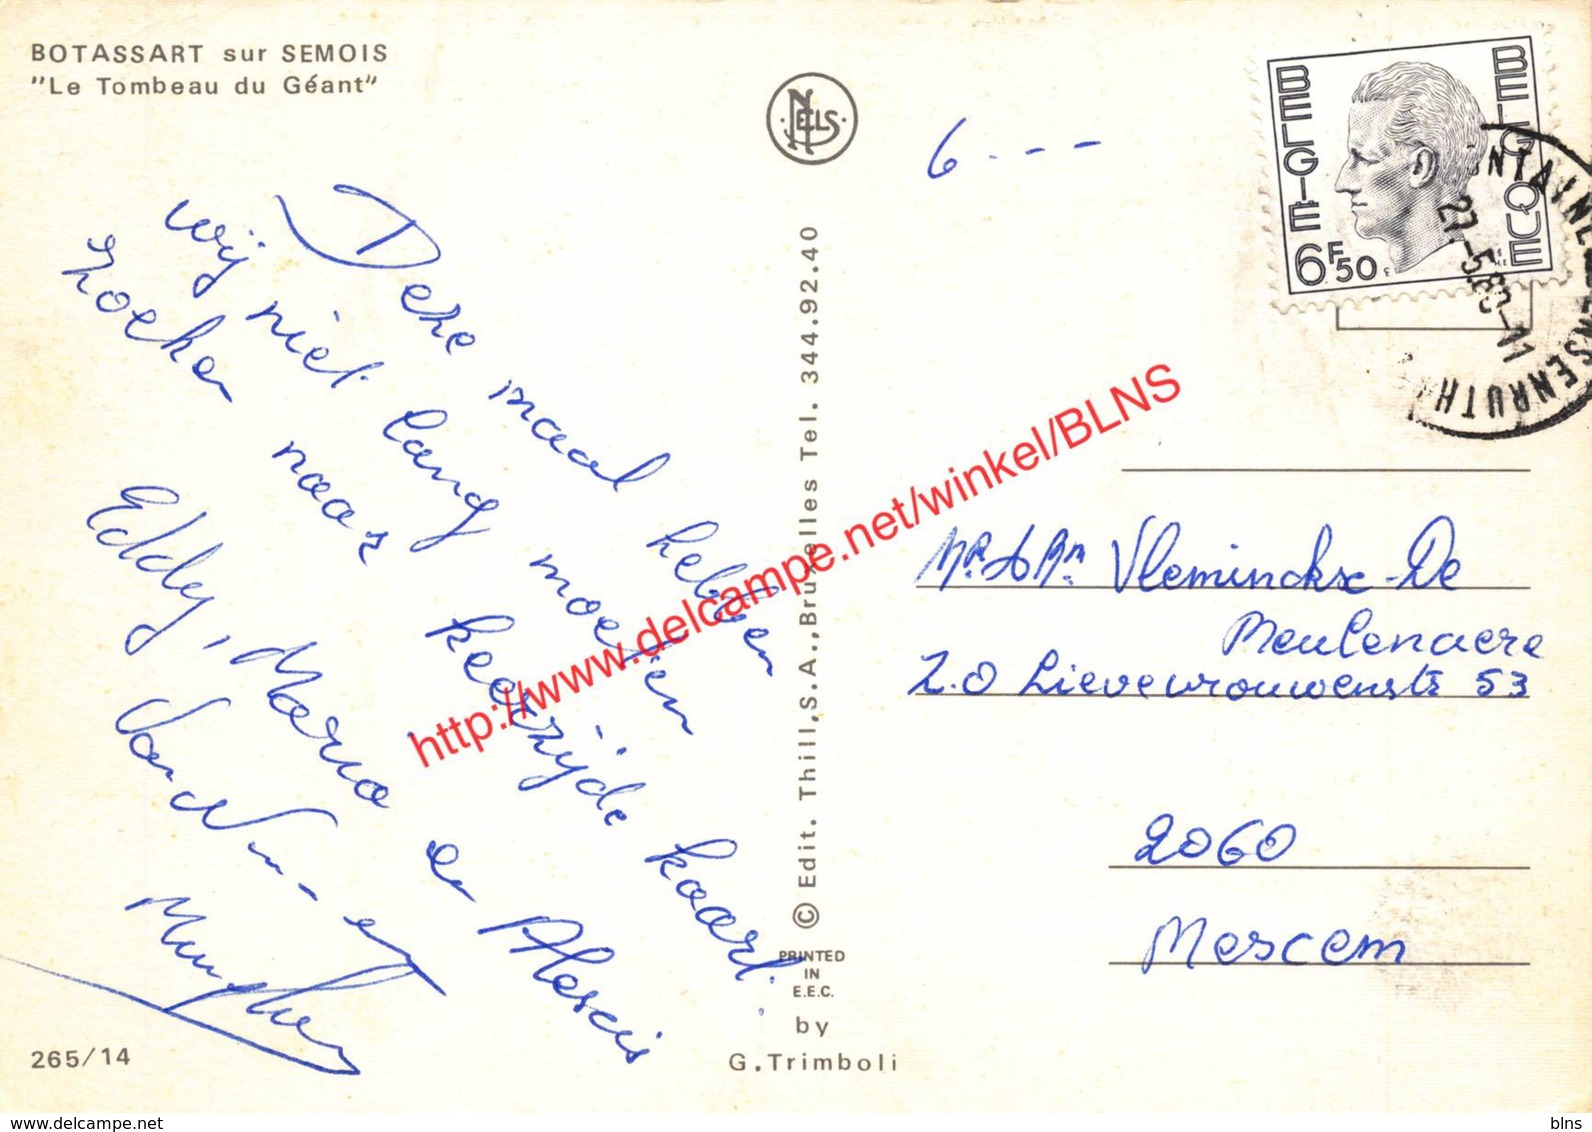 BOTASSART sur SEMOIS
"Le Tombeau du Géant"
NELS
6 . - - -
BELGIE
BELGIQUE
6F50
27.-5.83-11
ENSENRUTH
Deze maal hebben
wij niet lang moeten
zoeken naar keerzijde kaart.
Eddy, Maria en Alexis
Mr & Mm Vleminckx-De
Meulenaere
Z.O Lievevrouwenstr 53
2060
Merscem
© Edit. Thill,S.A.,Bruxelles Tel. 344.92.40
PRINTED
IN
E.E.C.
by
G.Trimboli
265/14
http://www.delcampe.net/winkel/BLNS
www.delcampe.net
blns